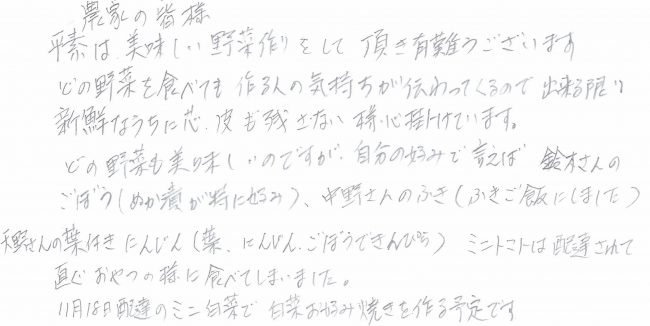 農家の皆様
平素は、美味しい野菜作りをして頂き有難うございます
どの野菜を食べても作る人の気持ちが伝わってくるので出来る限り
新鮮なうちに芯、皮も残さない様心掛けています。
どの野菜も美味しいのですが、自分の好みで言えば 鈴木さんの
ごぼう(ぬか漬が特に好み)、中野さんのふき(ふきご飯にしました)
天野さんの葉付きにんじん(葉、にんじん、ごぼうできんぴら) ミニトマトは配達されて
直ぐおやつの様に食べてしまいました。
11月18日配達のミニ白菜で 白菜お好み焼きを作る予定です